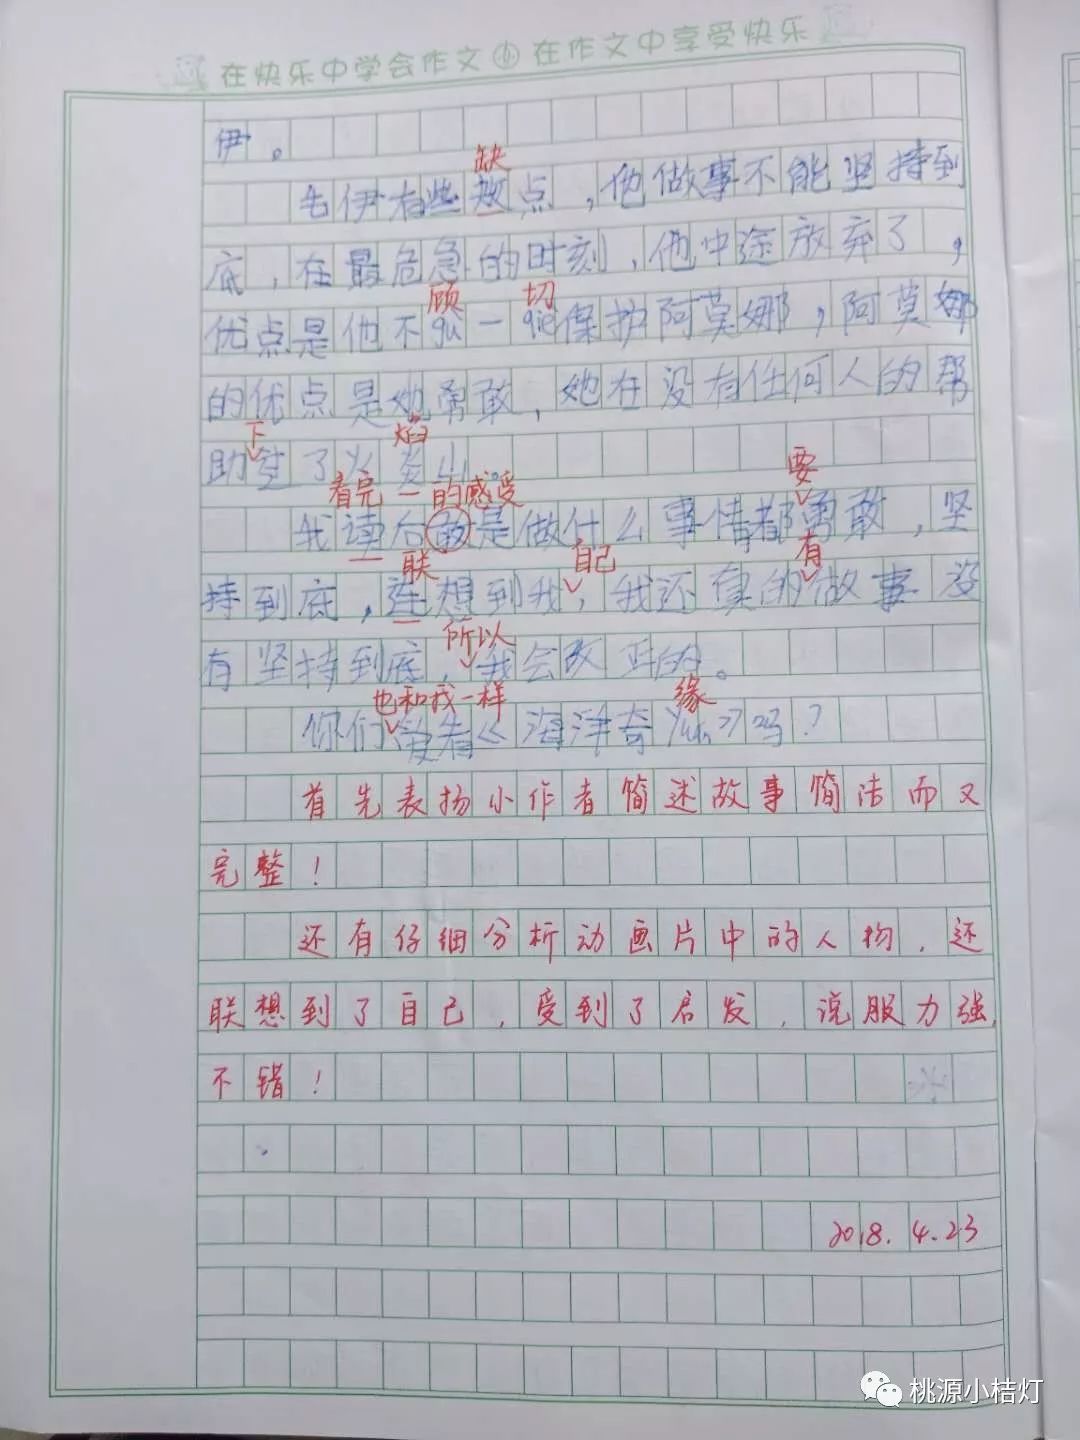 在快乐中学会作文 在作文中享受快乐
伊。
缺
毛伊有些缺点，他做事不能坚持到
底，在最危急的时刻，他中途放弃了，
顾 切
优点是他不gu一qie保护阿莫娜，阿莫娜
的优点是她勇敢，她在没有任何人的帮
下 焰
助了火炎山。
看完 的感受 要
我读后是做什么事情都勇敢，坚
联 自己 有
持到底，连想到我，我还真的做事没
所以
有坚持到底，我会改正的。
也和我一样 缘
你们爱看《海洋奇yuán》吗？
首先表扬小作者简述故事简洁而又
完整！
还有仔细分析动画片中的人物，还
联想到了自己，受到了启发，说服力强，
不错！
2018.4.23
桃源小桔灯